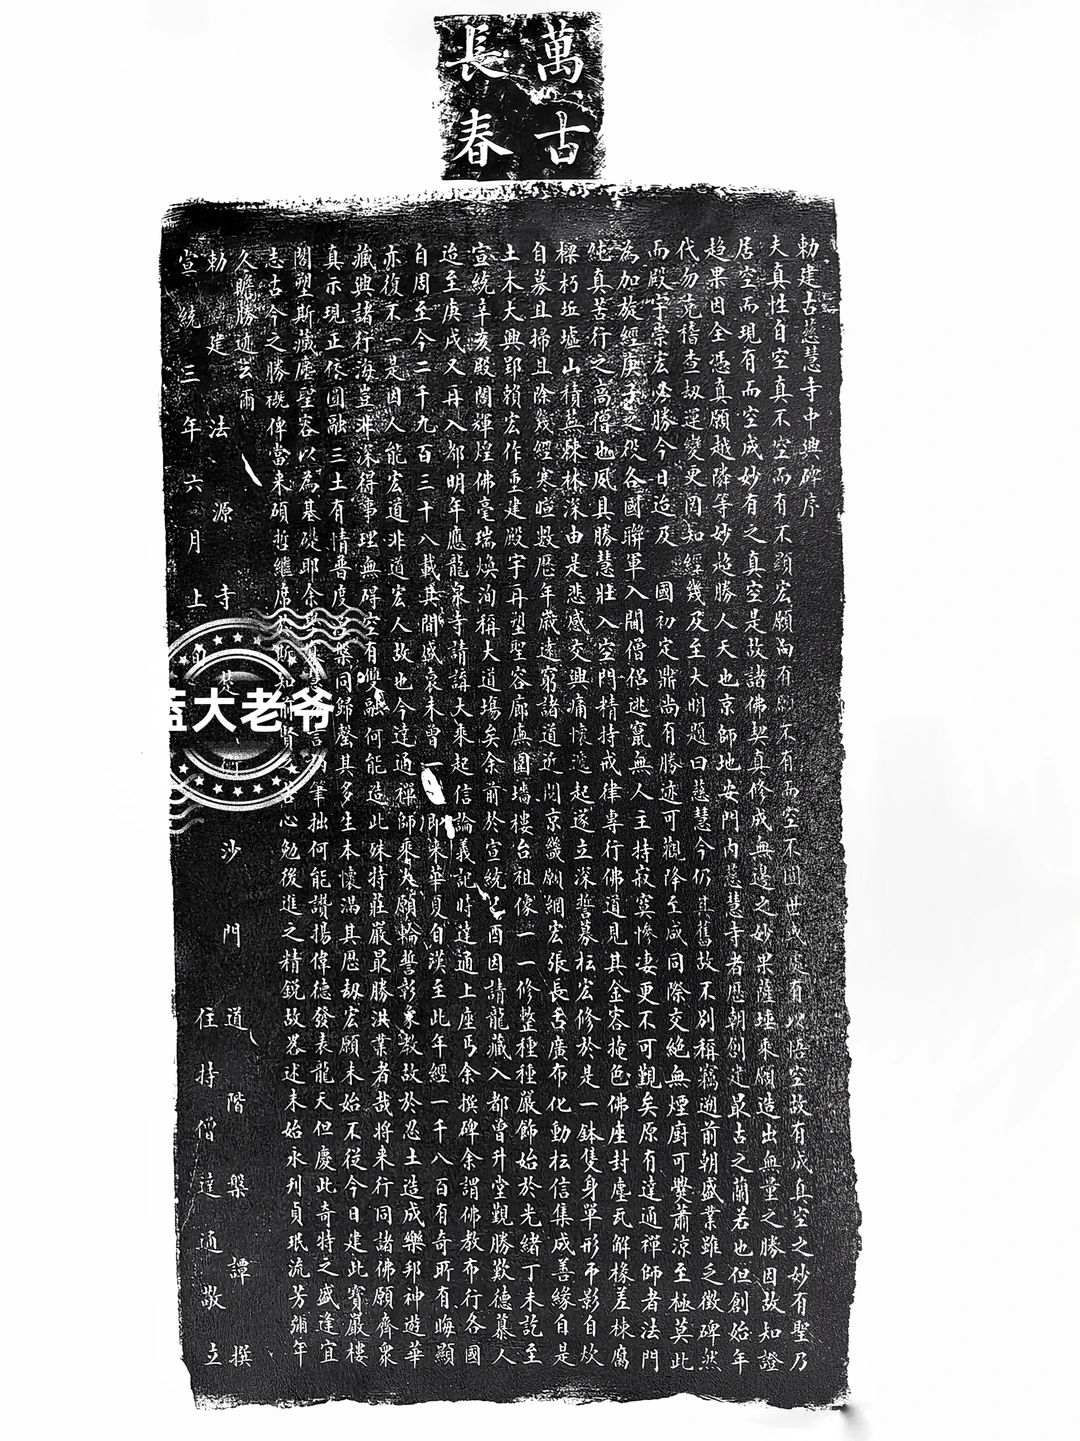 萬古
長春
勅建古慈慧寺中興碑序
夫真性自空真不空而有不顯宏願尚有不有而空不聞世咸處有以悟空故有成真空之妙有聖乃
居空而現有而空成妙有之真空是故諸佛契真修成無邊之妙果薩埵乘願造出無量之勝因故知證
趋果因全憑真願越隣等妙趋勝人天也京師地安門內慈慧寺者歷朝創建最古之蘭若也但創始年
代勿克稽查刼運變更罔知經幾及至大明題曰慈慧今仍其舊故不別稱竊遡前朝盛業雖乏徵碑然
而殿宇崇宏必勝今日迨及 國初定鼎尚有勝迹可觀降至咸同際交絕無煙廚可爨蕭涼至極莫此
為加旋經庚子之役各國聯軍入閽僧侶逃竄無人主持寂寞慘凄更不可觀矣原有達通禪師者法門
純真苦行之高僧也夙具勝慧壯入空門精持戒律專行佛道見其金容掩色佛座封塵瓦解椽差棟腐
樑朽坵墟山積蕪棘林深由是悲感交興痛懷遂起遂立深誓募抎宏修於是一鉢隻身單形弔影自炊
自募且掃且除幾經寒暄数歷年歲遠窮諸道近閱京畿願網宏張長舌廣布化動抎信集成善緣自是
土木大興耶賴宏作重建殿宇再塑聖容廊廡圍墻樓台祖像一一修整種種嚴飾始於光緒丁未訖至
宣統辛亥殿閣輝煌佛毫瑞煥洵稱大道場矣余前於宣統己酉因請龍藏入都曾升堂觀勝歎德慕人
迨至庚戌又再入都明年應龍泉寺請講大乘起信論義記時達通上座丐余撰碑余謂佛教布行各國
自周至今二千九百三十八載其間盛衰未曾一即來華夏自漢至此年經一千八百有奇所有晦顯
亦復不一是因人能宏道非道宏人故也今達通禪師乘大願輪誓彰象教故於忍土造成樂邦神遊華
藏興諸行海豈非深得事理無碍空有雙融何能造此殊特莊嚴最勝洪業者哉將来行同諸佛願齊衆
真示現正依圓融三土有情普度含槃同歸罄其多生本懷滿其歷刼宏願未始不從今日建此寶嚴樓
閣塑斯藏塵聖容以為基礎耶余言筆拙何能讚揚偉德發表龍天但慶此奇特之盛逢宜
志古今之勝槪俾當来碩哲繼席斯知前賢苦心勉後進之精銳故畧述末始永刋貞珉流芳弥年
久瞻勝迹云爾
勅建法源寺沙門道階槃譚撰
宣統三年六月上旬住持僧達通敬立
藍大老爷